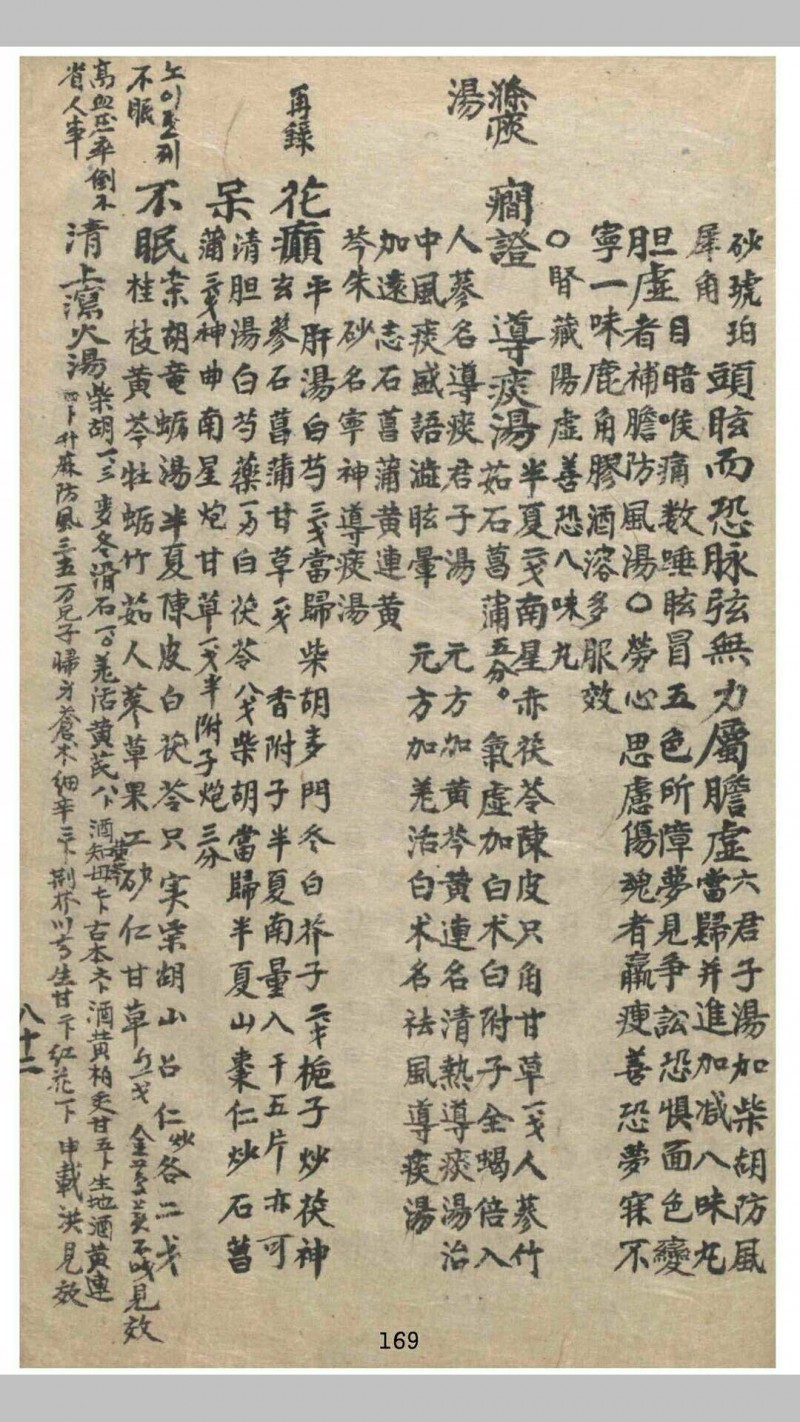 砂琥珀頭眩而恐脉弦無力屬膽虛六君子湯加柴胡防風
犀角
當歸并進加减八味丸
胆虛目暗喉痛数唾眩冒五色所障夢見争訟恐惧面色變
者補膽防風湯〇勞心思慮傷魂者羸瘦善恐夢寐不
寧一味鹿角膠酒溶多服效
〇腎藏陽虛善恐八味丸
滌痰湯
癎證
導痰湯半夏二戔南星赤茯苓陳皮只角甘草一戔人蔘竹
茹石菖蒲五分。氣虛加白朮白附子全蝎倍入
人蔘名導痰君子湯
元方加黄芩黄連名清熱導痰湯治
中風痰盛語澁眩暈
元方加羌活白朮名祛風導痰湯
加遠志石菖蒲黄連黄
芩朱砂名寧神導痰湯
再錄
花癲平肝湯白芍三戔當歸柴胡麥門冬白芥子二戔梔子炒茯神
玄蔘石菖蒲甘草一戔
香附子半夏南量入干五片亦可
呆清胆湯白芍藥一方白茯苓八戔柴胡當歸半夏山棗仁炒石菖
蒲三戔神曲南星炮甘草一戔半附子炮三分
노이로제
不眠
不眠柴胡竜蛎湯半夏陳皮白茯苓只实柴胡山召仁炒各二戔
桂枝黄芩牡蛎竹茹人蔘草果工砂仁甘草
不戔見效
高血压卒倒不
省人事
清上瀉火湯柴胡一三麥冬滑石一方羌活黄芪八卜酒知母七卜古本六卜酒黄柏炙甘五卜生地酒黄連
四卜升麻防風三五万兄子歸身蒼朮細辛三卜荆芥川芎生甘二卜紅花一卜申載洪見效
八十二
169